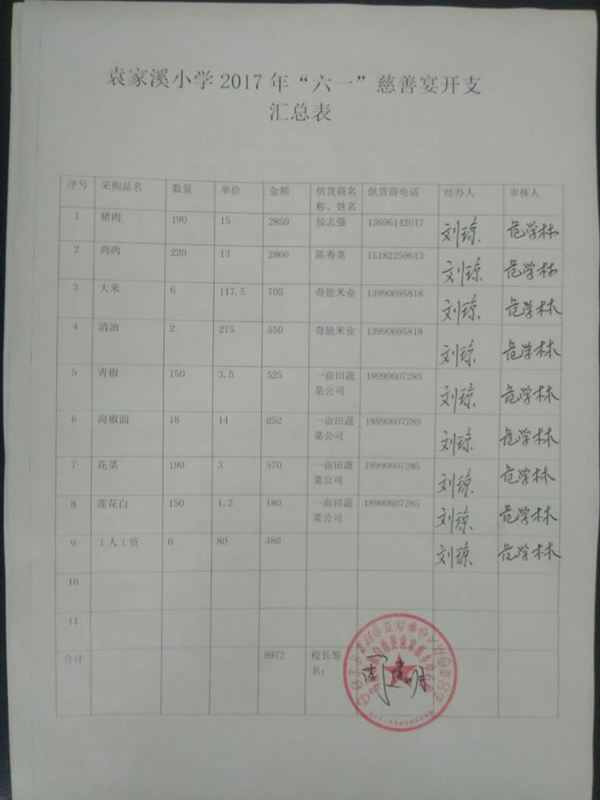 袁家溪小学 2017 年“六一”慈善宴开支
汇总表
序号 采购品名 数量 单价 金额 供货商名称、姓名 供货商电话 经办人 审核人
1 猪肉 190 15 2850 侯志强 13696142017 刘琼 危学林
2 鸡肉 220 13 2860 陈秀英 15182259613 刘琼 危学林
3 大米 6 117.5 705 奇能米业 13990695818 刘琼 危学林
4 清油 2 275 550 奇能米业 13990695818 刘琼 危学林
5 青椒 150 3.5 525 一亩田蔬菜公司 18990607285 刘琼 危学林
6 海椒面 18 14 252 一亩田蔬菜公司 18990607285 刘琼 危学林
7 花菜 190 3 570 一亩田蔬菜公司 18990607285 刘琼 危学林
8 莲花白 150 1.2 180 一亩田蔬菜公司 18990607285 刘琼 危学林
9 工人工资 6 80 480 刘琼 危学林
10
11
合计 8972 校长签名：